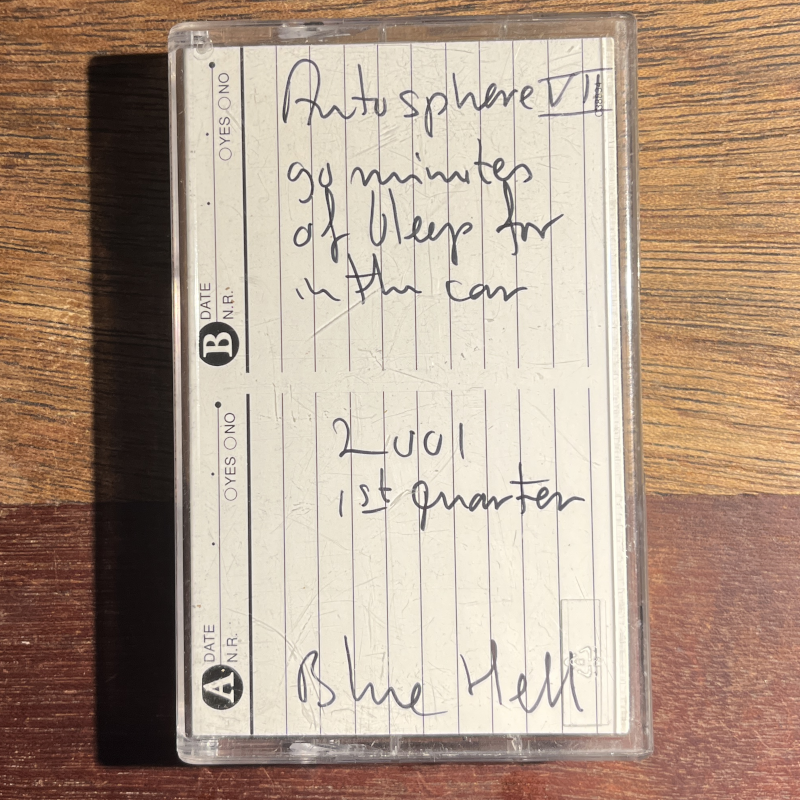 Autosphere VII
90 minutes
of bleep for
in the car
2001
1st quarter
Blue Hell
B DATE
N.R. YES NO
A DATE
N.R. YES NO